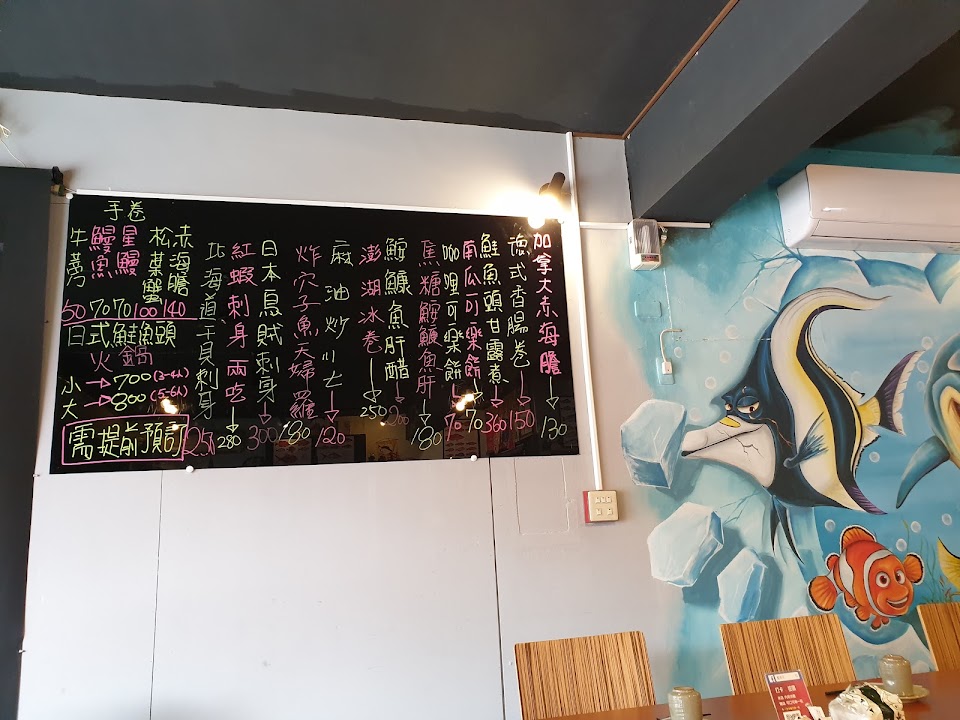 加拿大赤海膽→130
德式香腸卷→150
鮭魚頭甘露煮→360
南瓜可樂餅→70
咖哩可樂餅→70
焦糖鮟鱇魚肝→180
鮟鱇魚肝醋→200
澎湖冰卷→250
麻油炒川七→120
炸穴子魚天婦羅180
日本烏賊刺身→300
紅蝦刺身兩吃→280
北海道干貝刺身250
手卷
牛蒡 50
鰻魚 70
星鰻 70
松葉蟹 100
赤海膽 140
日式鮭魚頭
火鍋
小→700(3-4人)
大→800(5-6人)
需提前預訂